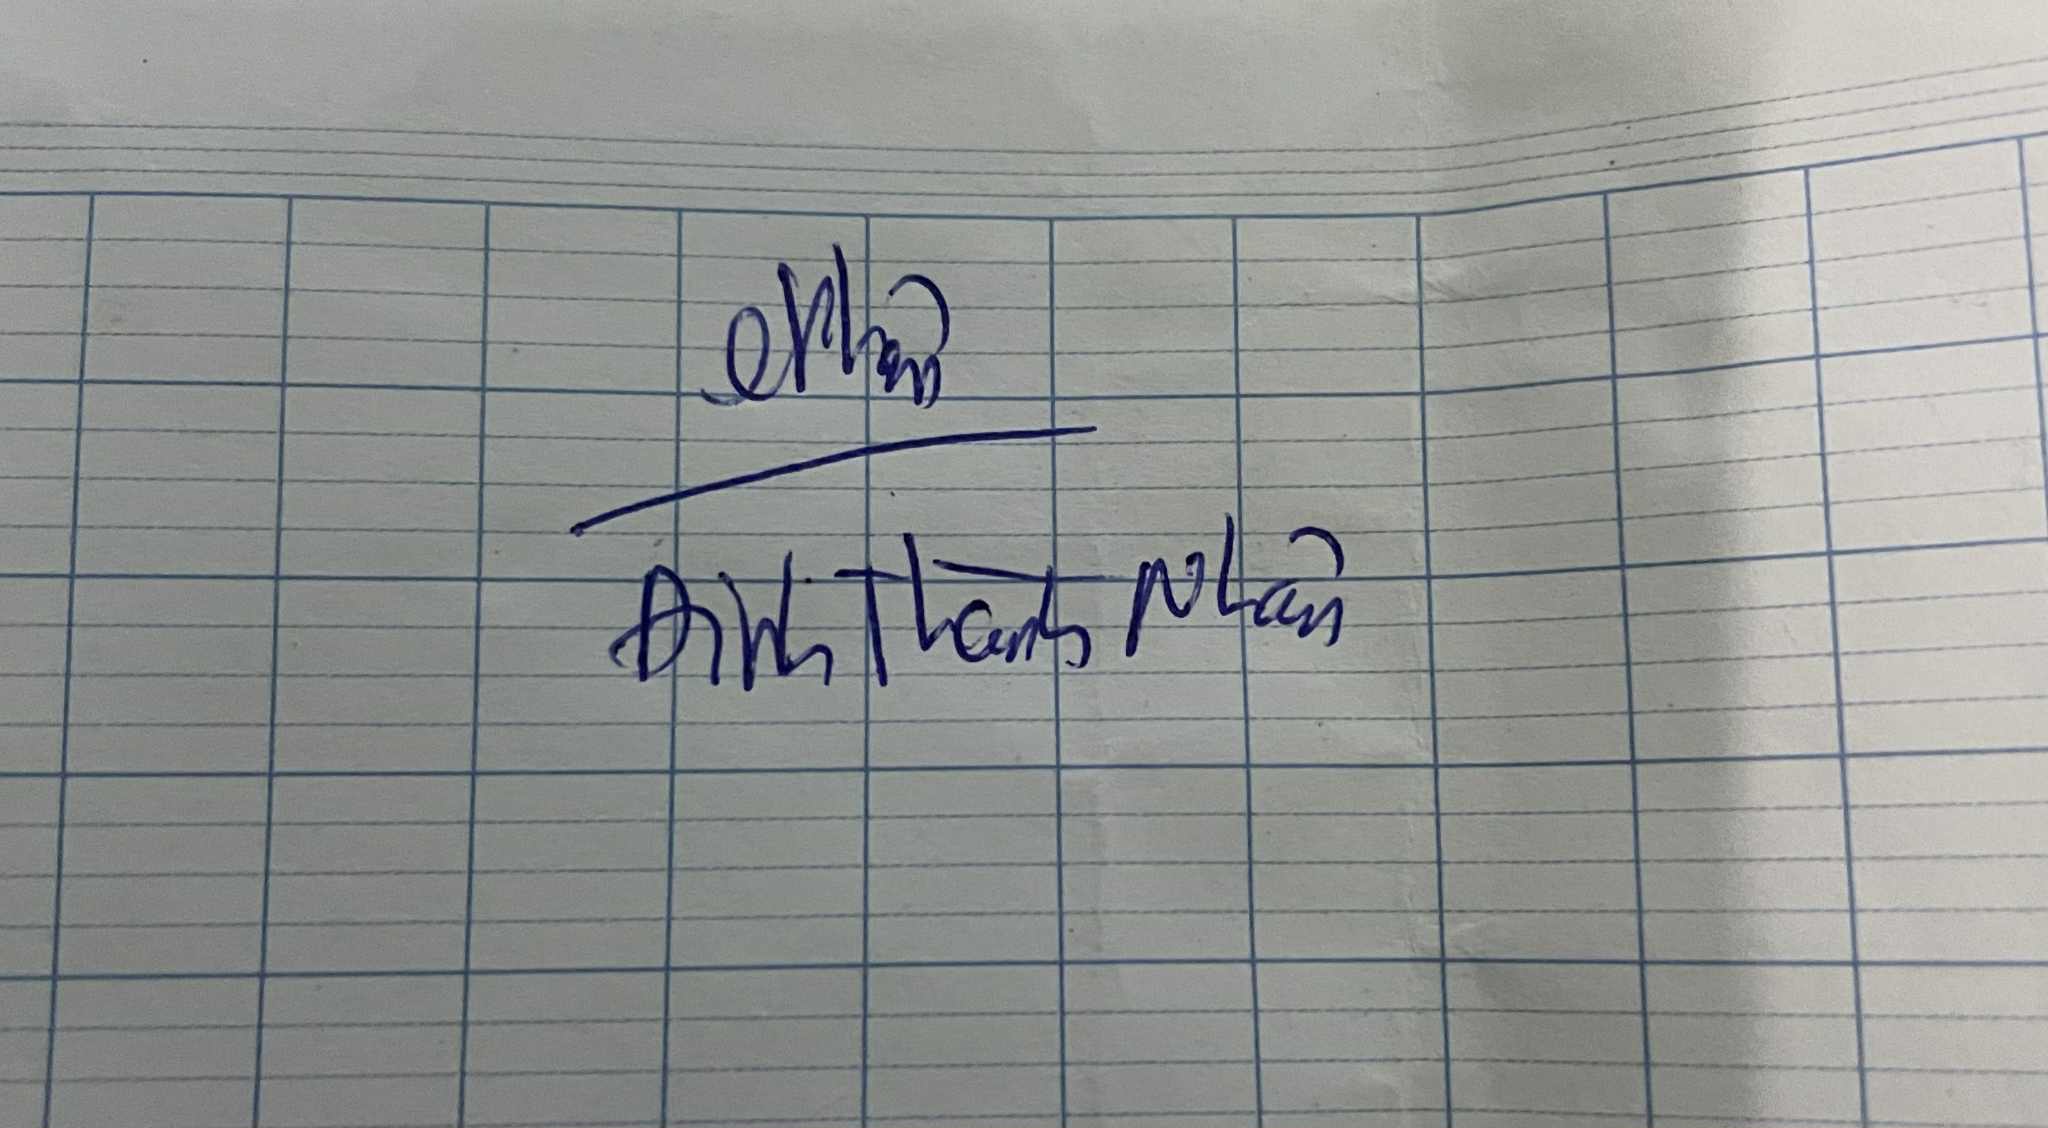 Nhân
Đinh Thanh Nhân